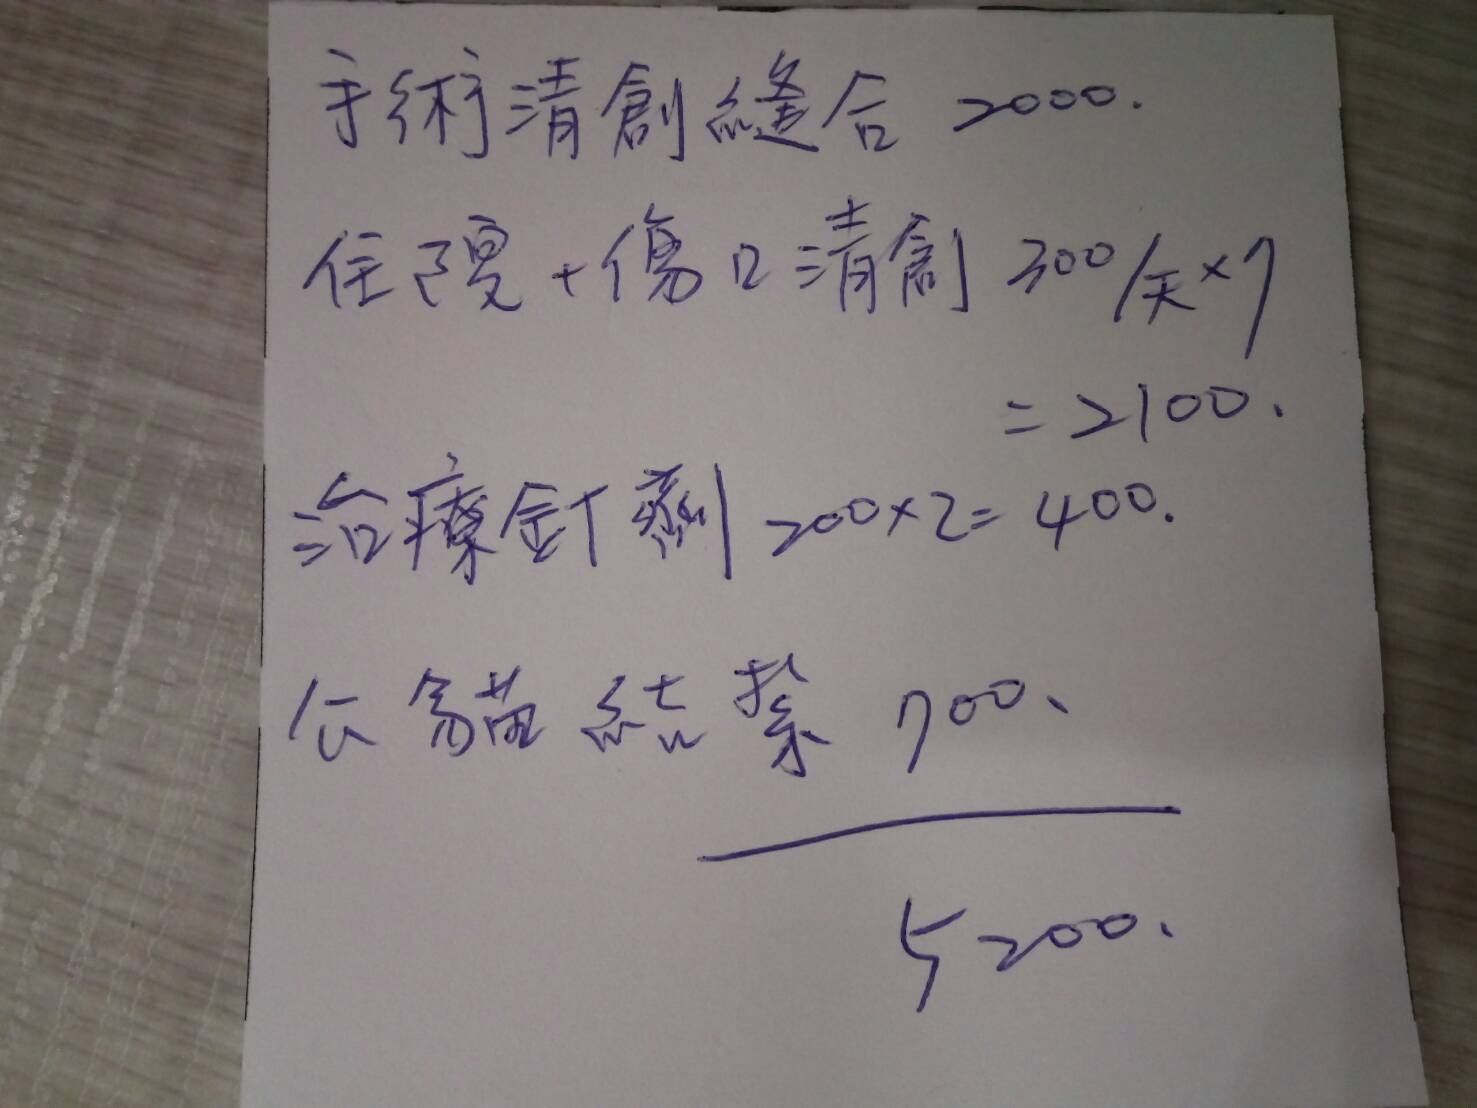 手術清創縫合 2000.
住院+傷口清創 300/天×7
=2100.
治療針劑 200×2=400.
公貓結紮 700、
5200、